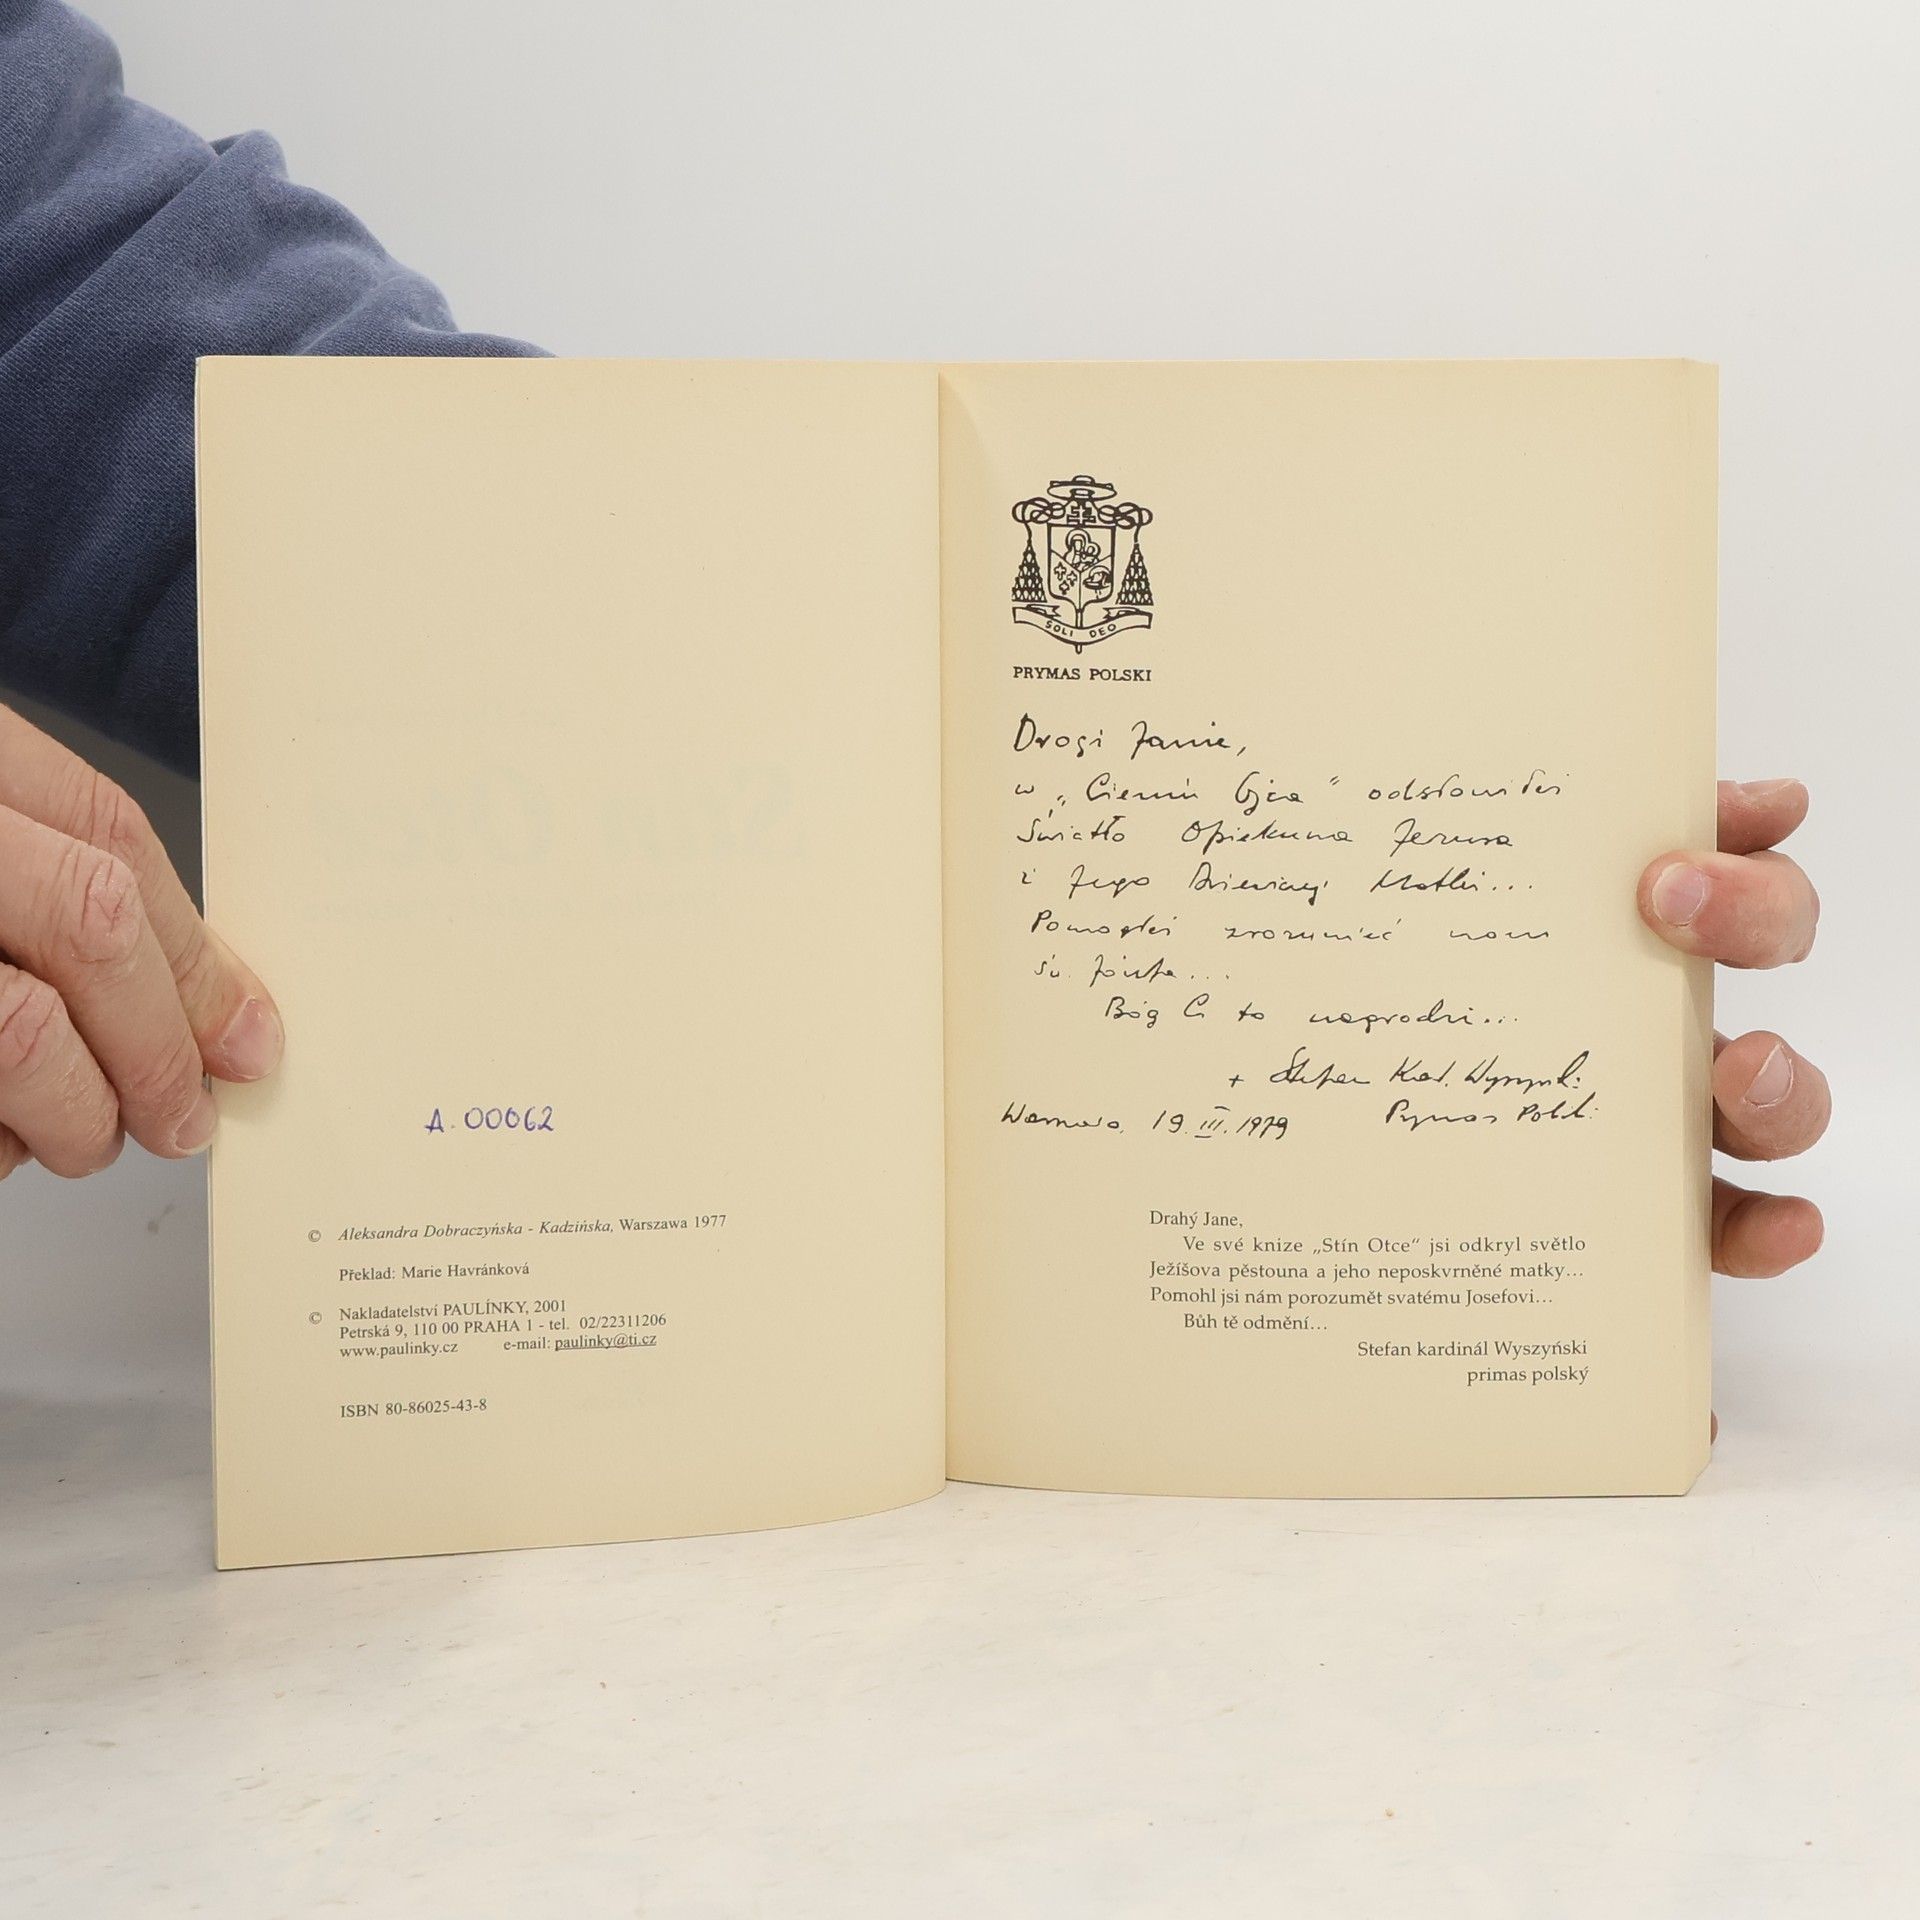 A. 00062
© Aleksandra Dobraczyńska - Kadzińska, Warszawa 1977
Překlad: Marie Havránková
© Nakladatelství PAULÍNKY, 2001
Petrská 9, 110 00 PRAHA 1 - tel. 02/22311206
www.paulinky.cz e-mail: paulinky@ti.cz
ISBN 80-86025-43-8
SOLI DEO
PRYMAS POLSKI
Drogi Janie,
w „Cieniu Ojca" odsłoniłeś
Światło Opiekuna Jezusa
i Jego Dziewiczej Matki...
Pomogłeś zrozumieć nam
św. Józefa...
Bóg Ci to nagrodzi...
+ Stefan Kard. Wyszyński
Warszawa, 19. III. 1979 Prymas Polski
Drahý Jane,
Ve své knize „Stín Otce“ jsi odkryl světlo
Ježíšova pěstouna a jeho neposkvrněné matky...
Pomohl jsi nám porozumět svatému Josefovi...
Bůh tě odmění...
Stefan kardinál Wyszyński
primas polský